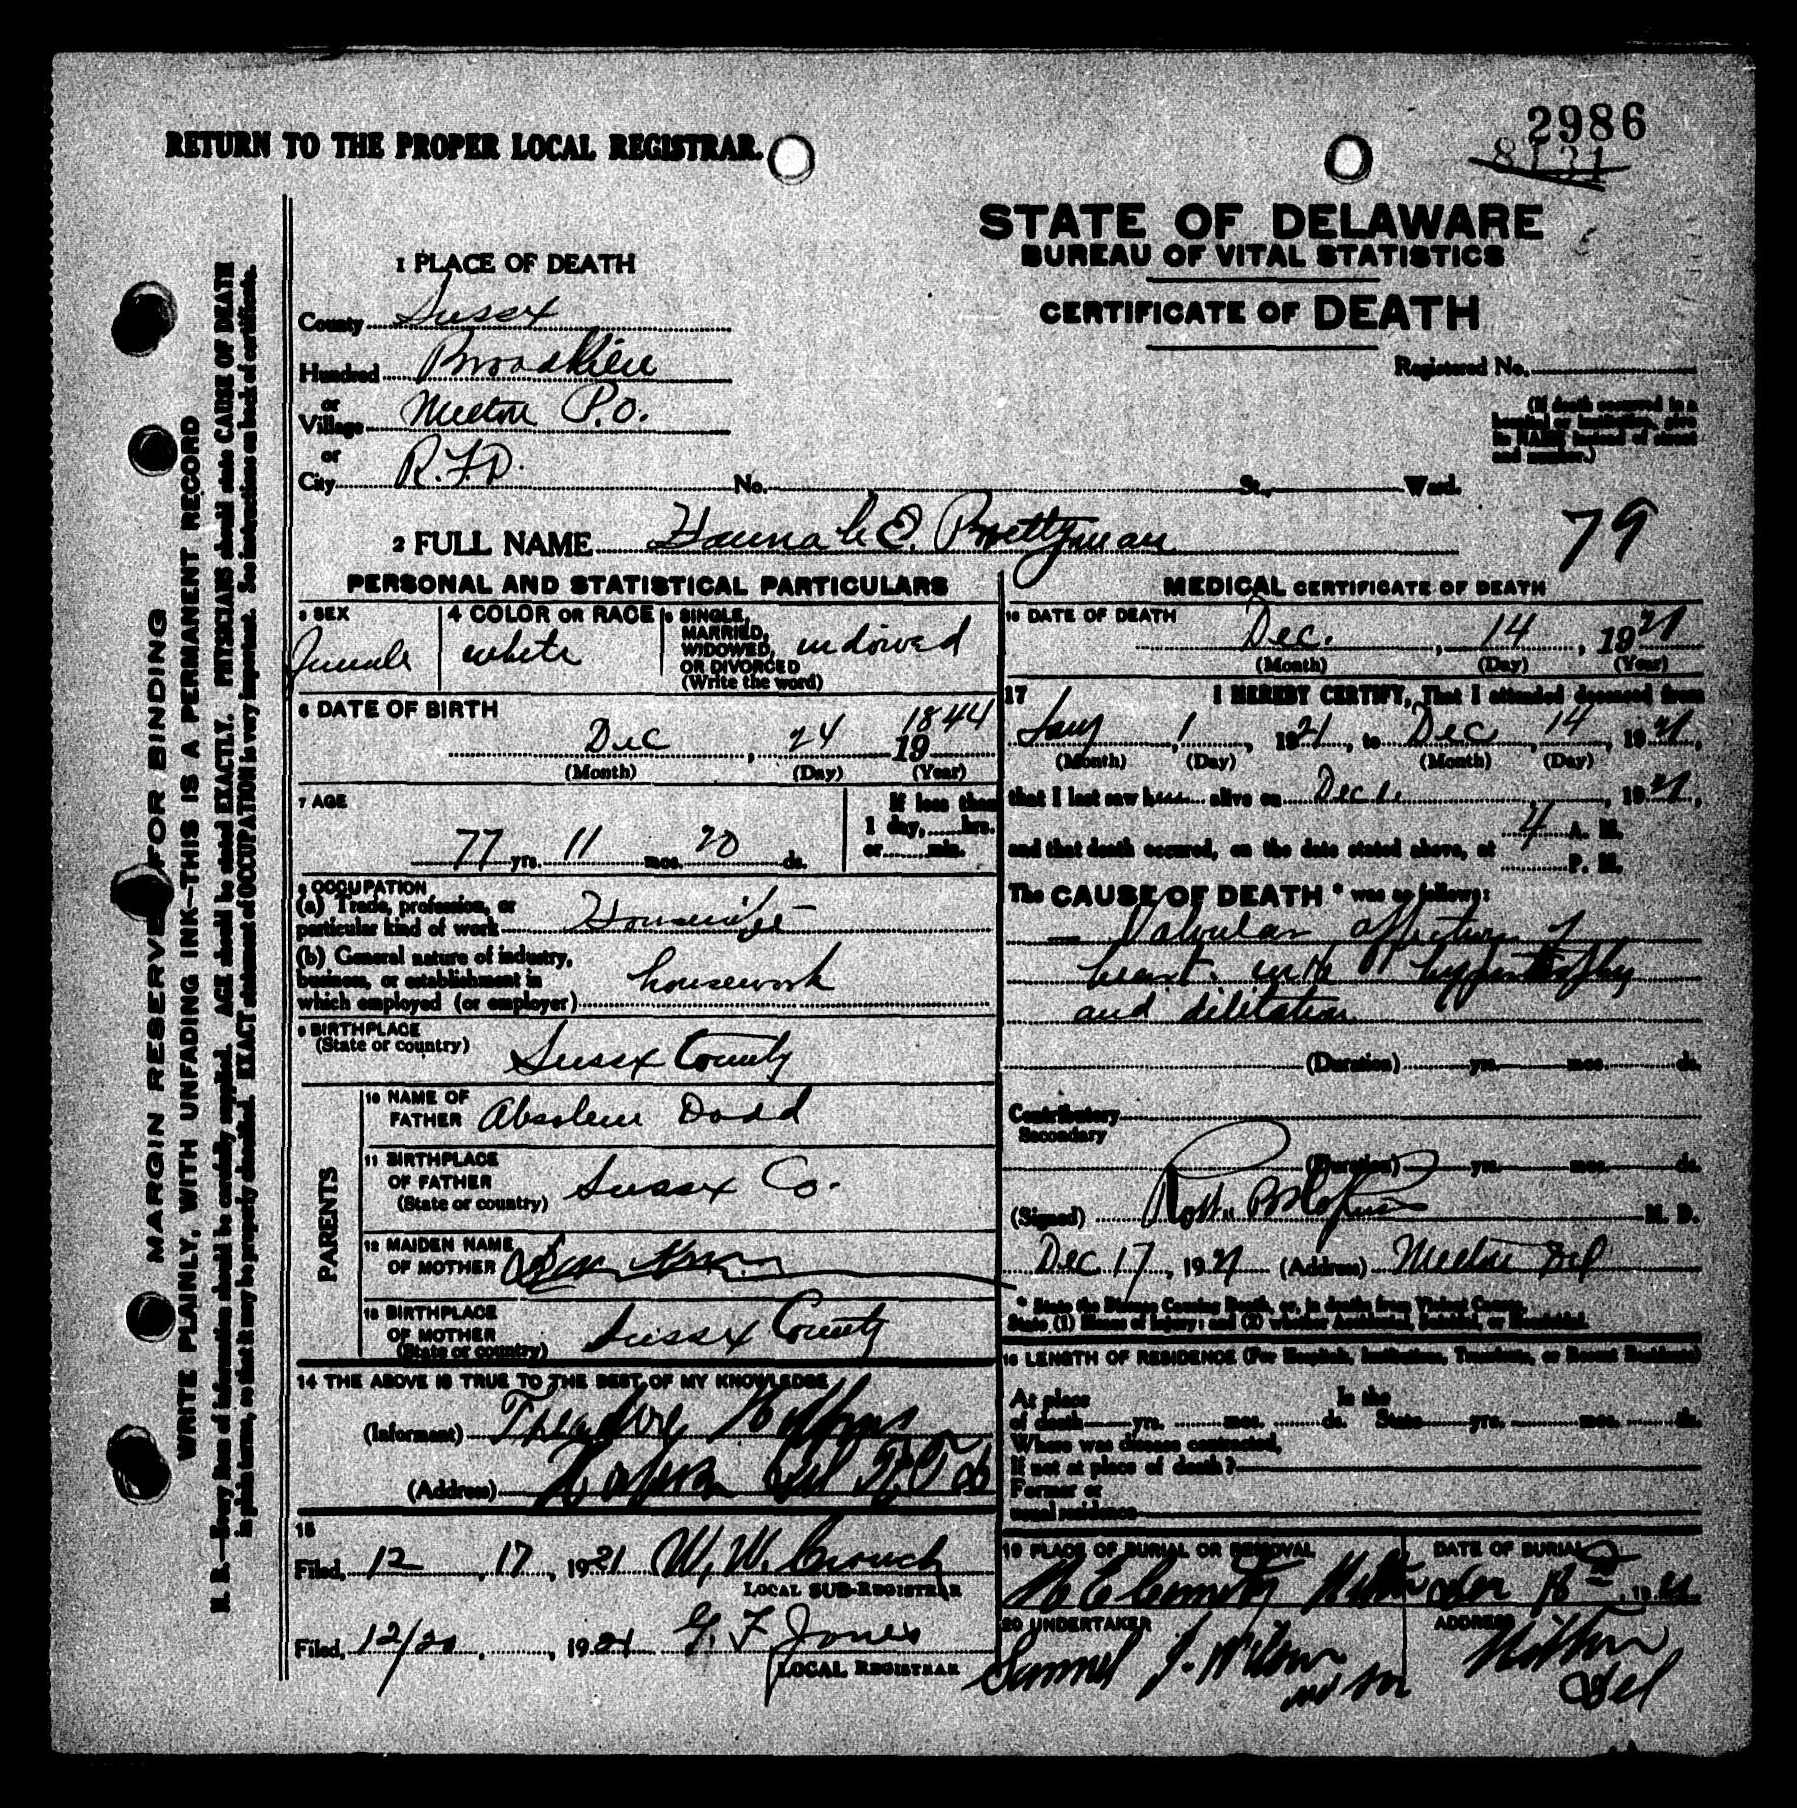 2986
8131
RETURN TO THE PROPER LOCAL REGISTRAR.
STATE OF DELAWARE
BUREAU OF VITAL STATISTICS
CERTIFICATE OF DEATH
1 PLACE OF DEATH
County Sussex
Hundred Broadkiln
or
Village Milton P.O.
or
City R.F.D. No. St., Ward.
Registered No.
(If death occurred in a
hospital or institution, give
its NAME instead of street
and number.)
2 FULL NAME Hannah E. Prettyman
79
PERSONAL AND STATISTICAL PARTICULARS
3 SEX
Female
4 COLOR OR RACE
white
5 SINGLE,
MARRIED,
WIDOWED,
OR DIVORCED
(Write the word)
widowed
6 DATE OF BIRTH
Dec, 24 1844
19
(Month) (Day) (Year)
7 AGE
77 yrs. 11 mos. 20 ds.
If less than
1 day, hrs.
or min.
8 OCCUPATION
(a) Trade, profession, or
particular kind of work Housewife
(b) General nature of industry,
business, or establishment in
which employed (or employer) housework
9 BIRTHPLACE
(State or country)
Sussex County
PARENTS
10 NAME OF
FATHER Absolem Dodd
11 BIRTHPLACE
OF FATHER
(State or country) Sussex Co.
12 MAIDEN NAME
OF MOTHER
13 BIRTHPLACE
OF MOTHER
(State or country) Sussex County
14 THE ABOVE IS TRUE TO THE BEST OF MY KNOWLEDGE
(Informant) Theadore
(Address) Del
15
Filed, 12, 17, 1921 W. W. Crouch
LOCAL SUB-REGISTRAR
Filed, 12/20, 1921 G. F. Jones
LOCAL REGISTRAR
MEDICAL CERTIFICATE OF DEATH
16 DATE OF DEATH
Dec., 14, 1921
(Month) (Day) (Year)
17 I HEREBY CERTIFY, That I attended deceased from
Jany, 1, 1921, to Dec, 14, 1921,
(Month) (Day) (Month) (Day)
that I last saw her alive on Dec 1, 1921,
and that death occured, on the date stated above, at 4 A. M.
P. M.
The CAUSE OF DEATH * was as follows:
Valvular affection of
heart with hypertrophy
and dilitation
(Duration) yrs. mos. ds.
Contributory
Secondary
(Duration) yrs. mos. ds.
(Signed) Robt. B Hopkins M. D.
Dec 17, 1921 (Address) Milton Del
* State the Disease Causing Death, or, in deaths from Violent Causes,
State (1) Means of Injury; and (2) whether Accidental, Suicidal, or Homicidal.
18 LENGTH OF RESIDENCE (For Hospitals, Institutions, Transients, or Recent Residents)
At place In the
of death yrs. mos. ds. State yrs. mos. ds.
Where was disease contracted,
If not at place of death?
Former or
usual residence
19 PLACE OF BURIAL OR REMOVAL
M E Cemetery Milton
DATE OF BURIAL
, 1921
20 UNDERTAKER
Samuel J. Wilson
and Son
ADDRESS
Milton
Del
MARGIN RESERVED FOR BINDING
WRITE PLAINLY, WITH UNFADING INK—THIS IS A PERMANENT RECORD
N. B.—Every item of information should be carefully supplied. AGE should be stated EXACTLY. PHYSICIANS should state CAUSE OF DEATH
in plain terms, so that it may be properly classified. EXACT statement of OCCUPATION is very important. See instructions on back of certificate.